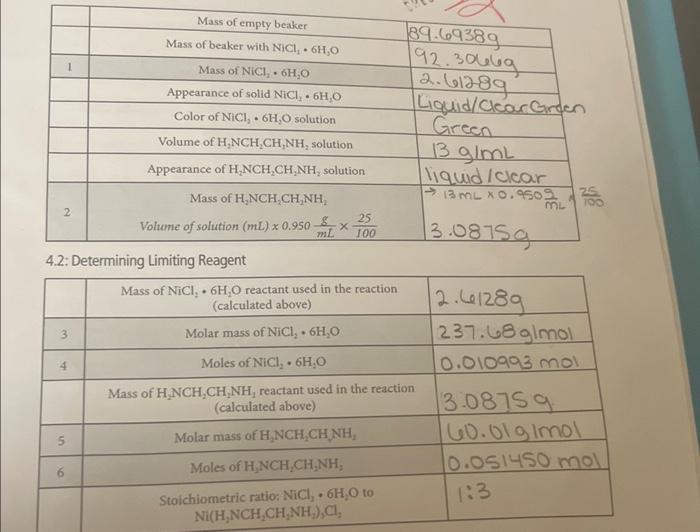 Mass of empty beaker 89.6938g
Mass of beaker with NiCl₂ • 6H₂O 92.3066g
1 Mass of NiCl₂ • 6H₂O 2.6128g
Appearance of solid NiCl₂ • 6H₂O Liquid/Clear Green
Color of NiCl₂ • 6H₂O solution Green
Volume of H₂NCH₂CH₂NH₂ solution 13 g/mL
Appearance of H₂NCH₂CH₂NH₂ solution liquid/clear
2 Mass of H₂NCH₂CH₂NH₂ → 13mL x 0.950 g/mL x 25/100
Volume of solution (mL) x 0.950 g/mL × 25/100 3.0875g
4.2: Determining Limiting Reagent
Mass of NiCl₂ • 6H₂O reactant used in the reaction
(calculated above) 2.6128g
3 Molar mass of NiCl₂ • 6H₂O 237.68g/mol
4 Moles of NiCl₂ • 6H₂O 0.010993 mol
Mass of H₂NCH₂CH₂NH₂ reactant used in the reaction
(calculated above) 3.0875g
5 Molar mass of H₂NCH₂CH₂NH₂ 60.01g/mol
6 Moles of H₂NCH₂CH₂NH₂ 0.051450 mol
Stoichiometric ratio: NiCl₂ • 6H₂O to 1:3
Ni(H₂NCH₂CH₂NH₂)₃Cl₂